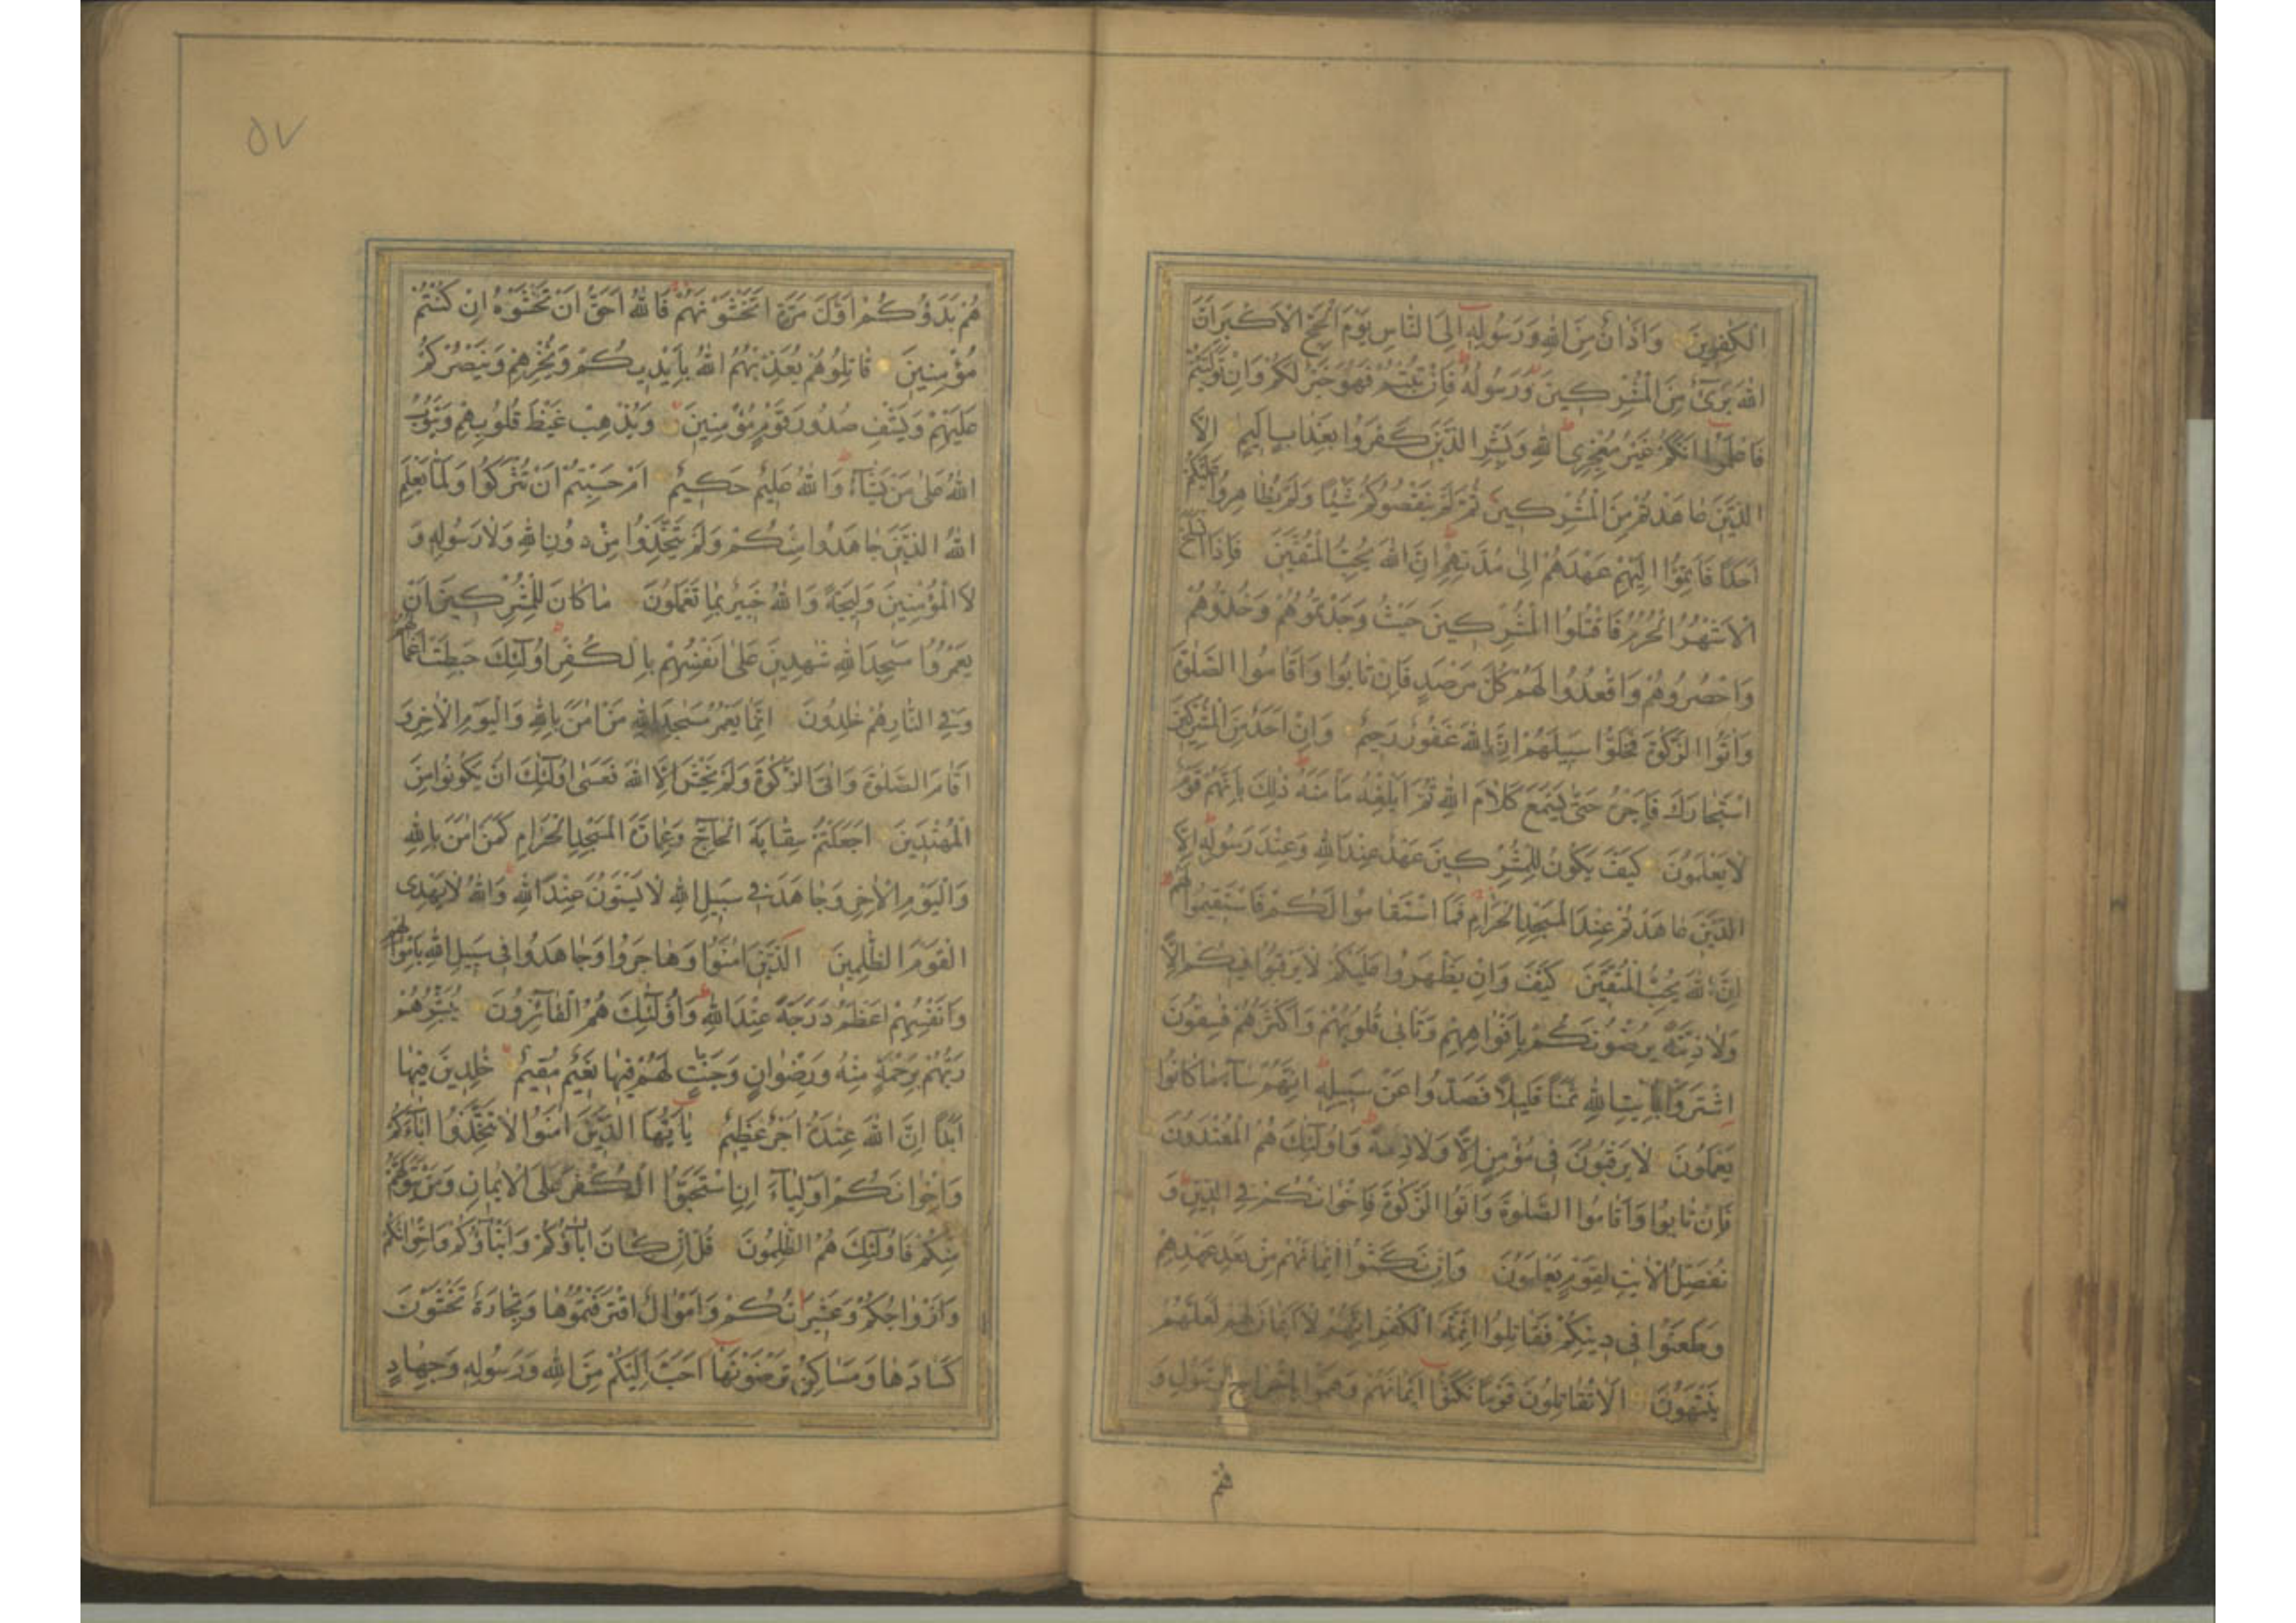 الْكٰفِرِينَ وَاَذَانٌ مِنَ اللّٰهِ وَرَسُولِهٖ اِلَى النَّاسِ يَوْمَ الْحَجِّ الْاَكْبَرِ اَنَّ
اللّٰهَ بَرِیٓءٌ مِنَ الْمُشْرِكِينَ وَرَسُولُهُ فَاِنْ تُبْتُمْ فَهُوَ خَيْرٌ لَكُمْ وَاِنْ تَوَلَّيْتُمْ
فَاعْلَمُوا اَنَّكُمْ غَيْرُ مُعْجِزِى اللّٰهِ وَبَشِّرِ الَّذِينَ كَفَرُوا بِعَذَابٍ اَلِيمٍ اِلَّا
الَّذِينَ عَاهَدْتُمْ مِنَ الْمُشْرِكِينَ ثُمَّ لَمْ يَنْقُصُوكُمْ شَيْئًا وَلَمْ يُظَاهِرُوا عَلَيْكُمْ
اَحَدًا فَاَتِمُّوا اِلَيْهِمْ عَهْدَهُمْ اِلٰى مُدَّتِهِمْ اِنَّ اللّٰهَ يُحِبُّ الْمُتَّقِينَ فَاِذَا انْسَلَخَ
الْاَشْهُرُ الْحُرُمُ فَاقْتُلُوا الْمُشْرِكِينَ حَيْثُ وَجَدْتُمُوهُمْ وَخُذُوهُمْ
وَاحْصُرُوهُمْ وَاقْعُدُوا لَهُمْ كُلَّ مَرْصَدٍ فَاِنْ تَابُوا وَاَقَامُوا الصَّلٰوةَ
وَاٰتَوُا الزَّكٰوةَ فَخَلُّوا سَبِيلَهُمْ اِنَّ اللّٰهَ غَفُورٌ رَحِيمٌ وَاِنْ اَحَدٌ مِنَ الْمُشْرِكِينَ
اسْتَجَارَكَ فَاَجِرْهُ حَتّٰى يَسْمَعَ كَلَامَ اللّٰهِ ثُمَّ اَبْلِغْهُ مَاْمَنَهُ ذٰلِكَ بِاَنَّهُمْ قَوْمٌ
لَا يَعْلَمُونَ كَيْفَ يَكُونُ لِلْمُشْرِكِينَ عَهْدٌ عِنْدَ اللّٰهِ وَعِنْدَ رَسُولِهٖ اِلَّا
الَّذِينَ عَاهَدْتُمْ عِنْدَ الْمَسْجِدِ الْحَرَامِ فَمَا اسْتَقَامُوا لَكُمْ فَاسْتَقِيمُوا لَهُمْ
اِنَّ اللّٰهَ يُحِبُّ الْمُتَّقِينَ كَيْفَ وَاِنْ يَظْهَرُوا عَلَيْكُمْ لَا يَرْقُبُوا فِيكُمْ اِلًّا
وَلَا ذِمَّةً يُرْضُونَكُمْ بِاَفْوَاهِهِمْ وَتَاْبٰى قُلُوبُهُمْ وَاَكْثَرُهُمْ فٰسِقُونَ
اِشْتَرَوْا بِاٰيٰتِ اللّٰهِ ثَمَنًا قَلِيلًا فَصَدُّوا عَنْ سَبِيلِهٖ اِنَّهُمْ سَآءَ مَا كَانُوا
يَعْمَلُونَ لَا يَرْقُبُونَ فِى مُؤْمِنٍ اِلًّا وَلَا ذِمَّةً وَاُولٰٓئِكَ هُمُ الْمُعْتَدُونَ
فَاِنْ تَابُوا وَاَقَامُوا الصَّلٰوةَ وَاٰتَوُا الزَّكٰوةَ فَاِخْوَانُكُمْ فِى الدِّينِ وَ
نُفَصِّلُ الْاٰيٰتِ لِقَوْمٍ يَعْلَمُونَ وَاِنْ نَكَثُوا اَيْمَانَهُمْ مِنْ بَعْدِ عَهْدِهِمْ
وَطَعَنُوا فِى دِينِكُمْ فَقَاتِلُوا اَئِمَّةَ الْكُفْرِ اِنَّهُمْ لَا اَيْمَانَ لَهُمْ لَعَلَّهُمْ
يَنْتَهُونَ اَلَا تُقَاتِلُونَ قَوْمًا نَكَثُوا اَيْمَانَهُمْ وَهَمُّوا بِاِخْرَاجِ الرَّسُولِ وَ
هُمْ
٥٧
هُمْ بَدَؤُكُمْ اَوَّلَ مَرَّةٍ اَتَخْشَوْنَهُمْ فَاللّٰهُ اَحَقُّ اَنْ تَخْشَوْهُ اِنْ كُنْتُمْ
مُؤْمِنِينَ قَاتِلُوهُمْ يُعَذِّبْهُمُ اللّٰهُ بِاَيْدِيكُمْ وَيُخْزِهِمْ وَيَنْصُرْكُمْ
عَلَيْهِمْ وَيَشْفِ صُدُورَ قَوْمٍ مُؤْمِنِينَ وَيُذْهِبْ غَيْظَ قُلُوبِهِمْ وَيَتُوبُ
اللّٰهُ عَلٰى مَنْ يَشَآءُ وَاللّٰهُ عَلِيمٌ حَكِيمٌ اَمْ حَسِبْتُمْ اَنْ تُتْرَكُوا وَلَمَّا يَعْلَمِ
اللّٰهُ الَّذِينَ جَاهَدُوا مِنْكُمْ وَلَمْ يَتَّخِذُوا مِنْ دُونِ اللّٰهِ وَلَا رَسُولِهٖ وَ
لَا الْمُؤْمِنِينَ وَلِيجَةً وَاللّٰهُ خَبِيرٌ بِمَا تَعْمَلُونَ مَا كَانَ لِلْمُشْرِكِينَ اَنْ
يَعْمُرُوا مَسٰجِدَ اللّٰهِ شٰهِدِينَ عَلٰى اَنْفُسِهِمْ بِالْكُفْرِ اُولٰٓئِكَ حَبِطَتْ اَعْمَالُهُمْ
وَفِى النَّارِ هُمْ خٰلِدُونَ اِنَّمَا يَعْمُرُ مَسٰجِدَ اللّٰهِ مَنْ اٰمَنَ بِاللّٰهِ وَالْيَوْمِ الْاٰخِرِ وَ
اَقَامَ الصَّلٰوةَ وَاٰتَى الزَّكٰوةَ وَلَمْ يَخْشَ اِلَّا اللّٰهَ فَعَسٰى اُولٰٓئِكَ اَنْ يَكُونُوا مِنَ
الْمُهْتَدِينَ اَجَعَلْتُمْ سِقَايَةَ الْحَآجِّ وَعِمَارَةَ الْمَسْجِدِ الْحَرَامِ كَمَنْ اٰمَنَ بِاللّٰهِ
وَالْيَوْمِ الْاٰخِرِ وَجَاهَدَ فِى سَبِيلِ اللّٰهِ لَا يَسْتَوُنَ عِنْدَ اللّٰهِ وَاللّٰهُ لَا يَهْدِى
الْقَوْمَ الظّٰلِمِينَ اَلَّذِينَ اٰمَنُوا وَهَاجَرُوا وَجَاهَدُوا فِى سَبِيلِ اللّٰهِ بِاَمْوَالِهِمْ
وَاَنْفُسِهِمْ اَعْظَمُ دَرَجَةً عِنْدَ اللّٰهِ وَاُولٰٓئِكَ هُمُ الْفَآئِزُونَ يُبَشِّرُهُمْ
رَبُّهُمْ بِرَحْمَةٍ مِنْهُ وَرِضْوَانٍ وَجَنّٰتٍ لَهُمْ فِيهَا نَعِيمٌ مُقِيمٌ خٰلِدِينَ فِيهَا
اَبَدًا اِنَّ اللّٰهَ عِنْدَهُ اَجْرٌ عَظِيمٌ يَا اَيُّهَا الَّذِينَ اٰمَنُوا لَا تَتَّخِذُوا اٰبَآءَكُمْ
وَاِخْوَانَكُمْ اَوْلِيَآءَ اِنِ اسْتَحَبُّوا الْكُفْرَ عَلَى الْاِيمَانِ وَمَنْ يَتَوَلَّهُمْ
مِنْكُمْ فَاُولٰٓئِكَ هُمُ الظّٰلِمُونَ قُلْ اِنْ كَانَ اٰبَآؤُكُمْ وَاَبْنَآؤُكُمْ وَاِخْوَانُكُمْ
وَاَزْوَاجُكُمْ وَعَشِيرَتُكُمْ وَاَمْوَالٌ اقْتَرَفْتُمُوهَا وَتِجَارَةٌ تَخْشَوْنَ
كَسَادَهَا وَمَسَاكِنُ تَرْضَوْنَهَا اَحَبَّ اِلَيْكُمْ مِنَ اللّٰهِ وَرَسُولِهٖ وَجِهَادٍ